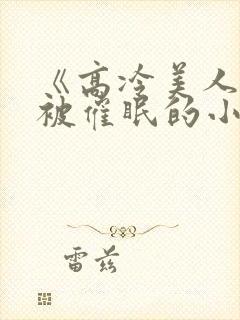 《高冷美人
被催眠的小
雷兹